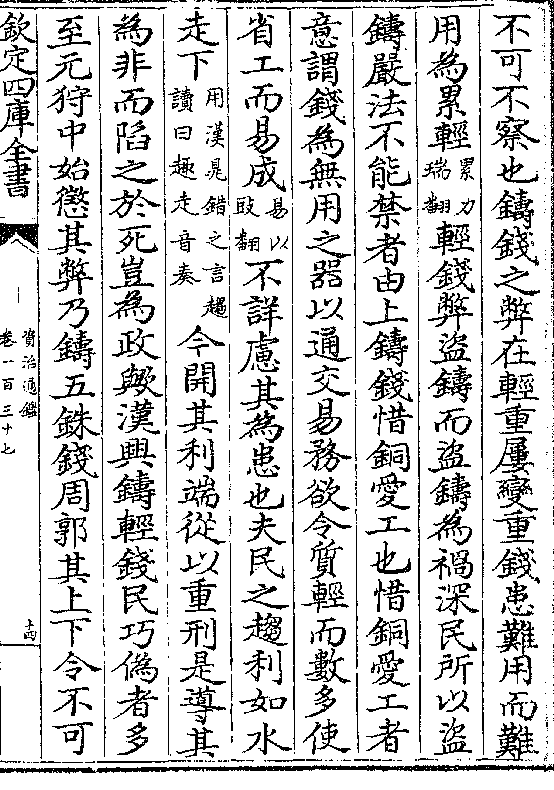 不可不察也鑄錢之弊在輕重屢變重錢患難用而難
用為累輕累力瑞翻輕錢弊盜鑄而盜鑄為禍深民所以盜
鑄嚴法不能禁者由上鑄錢惜銅愛工也惜銅愛工者
意謂錢為無用之器以通交易務欲令質輕而數多使
省工而易成易以豉翻不詳慮其為患也夫民之趨利如水
走下用漢晁錯之言趨讀曰趣走音奏今開其利端從以重刑是導其
為非而陷之於死豈為政歟漢興鑄輕錢民巧偽者多
至元狩中始懲其弊乃鑄五銖錢周郭其上下令不可
欽定四庫全書
資治通鑑
卷一百三十七
十四